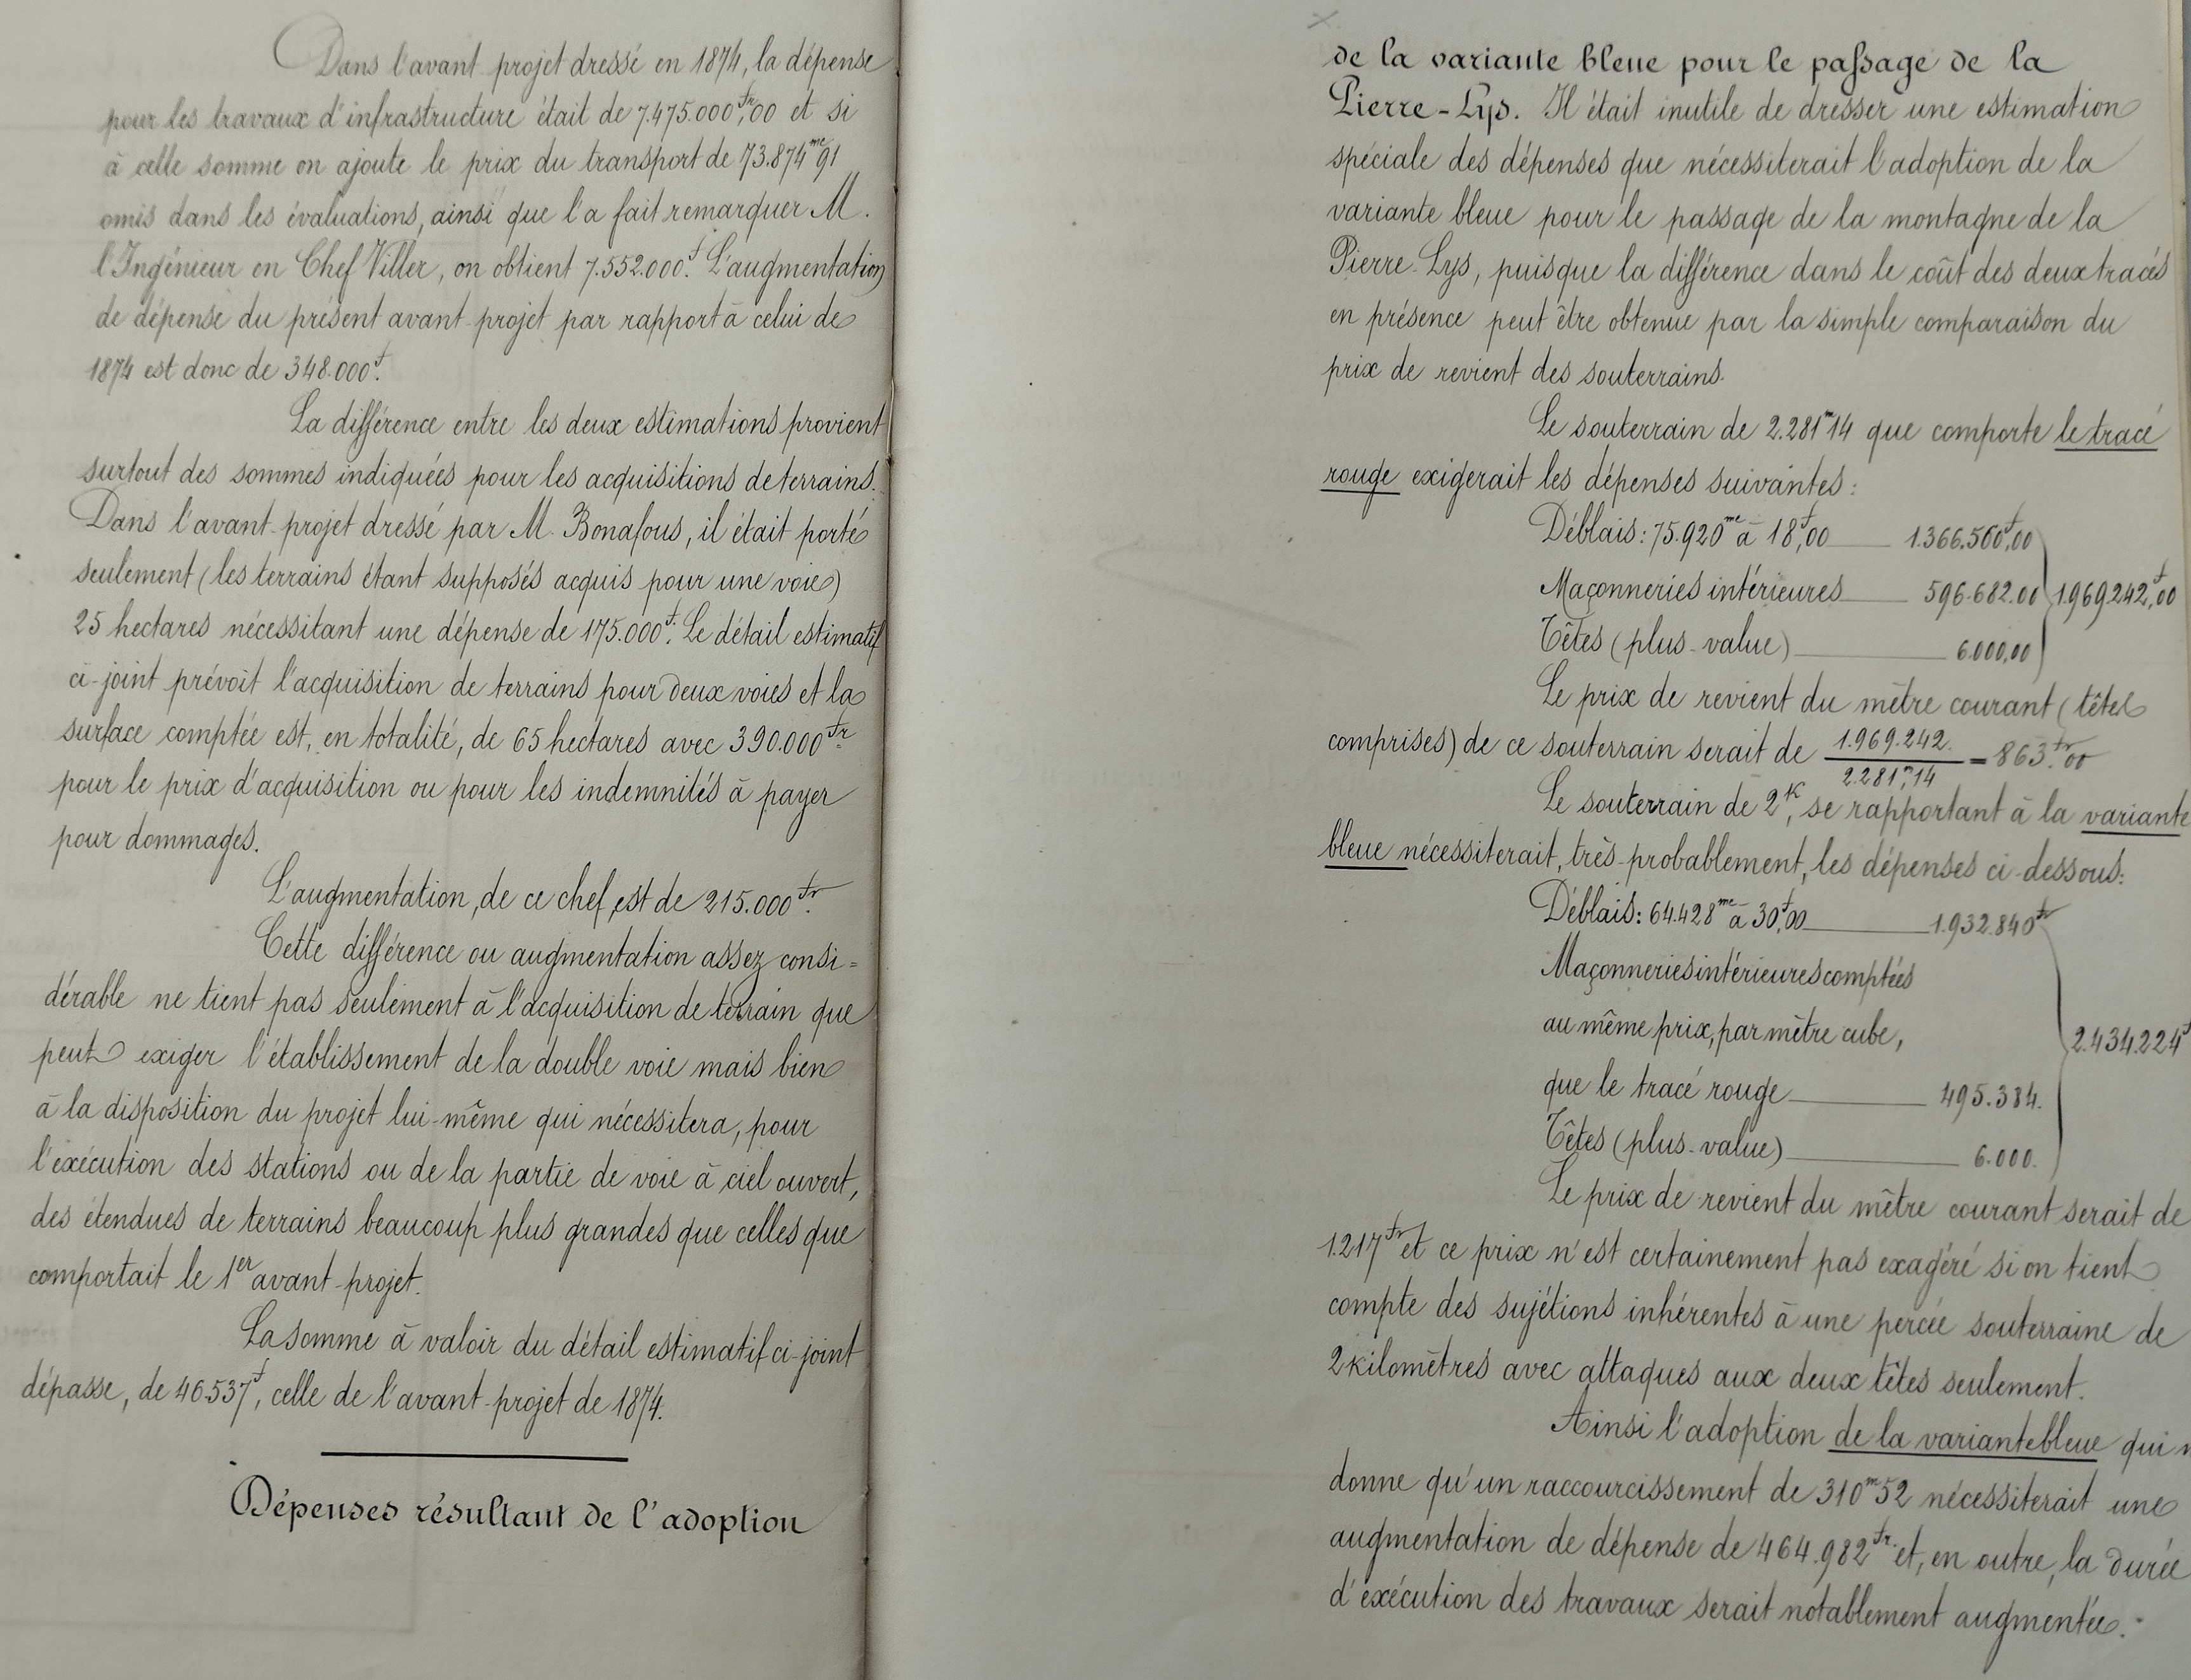 Dans l'avant projet dressé en 1874, la dépense
pour les travaux d'infrastructure était de 7.475.000fr,00 et si
à cette somme on ajoute le prix du transport de 73.874mc91
omis dans les évaluations, ainsi que l'a fait remarquer M.
l'Ingénieur en Chef Viller, on obtient 7.552.000f. L'augmentation
de dépense du présent avant-projet par rapport à celui de
1874 est donc de 348.000f.
La différence entre les deux estimations provient
surtout des sommes indiquées pour les acquisitions de terrains.
Dans l'avant-projet dressé par M. Bonafous, il était porté
seulement (les terrains étant supposés acquis pour une voie)
25 hectares nécessitant une dépense de 175.000f. Le détail estimatif
ci-joint prévoit l'acquisition de terrains pour deux voies et la
surface comptée est, en totalité, de 65 hectares avec 390.000fr.
pour le prix d'acquisition ou pour les indemnités à payer
pour dommages.
L'augmentation, de ce chef, est de 215.000fr.
Cette différence ou augmentation assez consi=
dérable ne tient pas seulement à l'acquisition de terrain que
peut exiger l'établissement de la double voie mais bien
à la disposition du projet lui-même qui nécessitera, pour
l'exécution des stations ou de la partie de voie à ciel ouvert,
des étendues de terrains beaucoup plus grandes que celles que
comportait le 1er avant-projet.
La somme à valoir du détail estimatif ci-joint
dépasse, de 46.537f, celle de l'avant-projet de 1874.
Dépenses résultant de l'adoption
de la variante bleue pour le passage de la
Pierre-Lys. Il était inutile de dresser une estimation
spéciale des dépenses que nécessiterait l'adoption de la
variante bleue pour le passage de la montagne de la
Pierre-Lys, puisque la différence dans le coût des deux tracés
en présence peut être obtenue par la simple comparaison du
prix de revient des souterrains.
Le souterrain de 2.281m14 que comporte le tracé
rouge exigerait les dépenses suivantes:
Déblais: 75.920mc à 18f,00 1.366.560f,00
Maçonneries intérieures 596.682.00 1.969.242f,00
Têtes (plus-value) 6.000,00
Le prix de revient du mètre courant (têtes
comprises) de ce souterrain serait de 1.969.242. / 2.281m,14 = 863fr,00
Le souterrain de 2K, se rapportant à la variante
bleue nécessiterait, très-probablement, les dépenses ci-dessous:
Déblais: 64.428mc à 30f,00 1.932.840fr
Maçonneries intérieures comptées
au même prix, par mètre cube, 2.434.224f
que le tracé rouge 495.384.
Têtes (plus-value) 6.000.
Le prix de revient du mètre courant serait de
1.217fr et ce prix n'est certainement pas exagéré si on tient
compte des sujétions inhérentes à une percée souterraine de
2 kilomètres avec attaques aux deux têtes seulement.
Ainsi l'adoption de la variante bleue qui
donne qu'un raccourcissement de 310m52 nécessiterait une
augmentation de dépense de 464.982fr. et, en outre, la durée
d'exécution des travaux serait notablement augmentée.